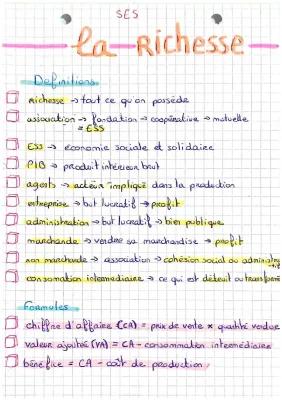 SES
La RICHESSE
Definitions
richesse → tout ce qu'on possède
association → fondation → coopérative → mutuelle
= ESS
ESS → économie sociale et solidaire
PIB → produit intérieur brut
agents → acteur impliqué dans la production
entreprise → but lucratif → profit
administration → but lucratif → bien publique
marchande → vendre sa marchandise → profit
non marchande → association → cohésion social ou administra
consomation intermediaire → ce qui est détruit ou transformé
Formules
chiffre d'affaire (CA) = prix de vente × quantité vendue
valeur ajoutée (VA) = CA - consommation intermédiaire
bénéfice = CA - coût de production